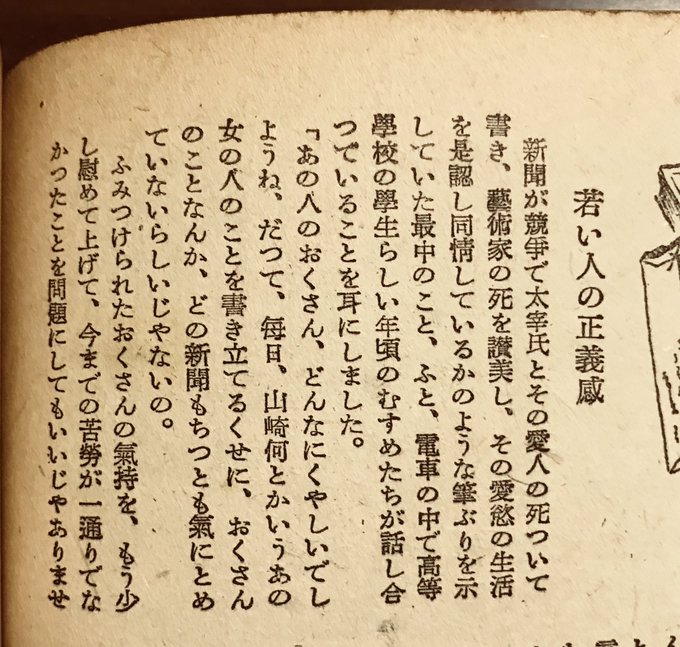 若い人の正義感
新聞が競爭で太宰氏とその愛人の死ついて
書き、藝術家の死を讃美し、その愛慾の生活
を是認し同情しているかのような筆ぶりを示
していた最中のこと、ふと、電車の中で高等
學校の學生らしい年頃のむすめたちが話し合
つていることを耳にしました。
「あの人のおくさん、どんなにくやしいでし
ようね、だつて、毎日、山崎何とかいうあの
女の人のことを書き立てるくせに、おくさん
のことなんか、どの新聞もちつとも氣にとめ
ていないらしいじやないの。
ふみつけられたおくさんの氣持を、もう少
し慰めて上げて、今までの苦勞が一通りでな
かつたことを問題にしてもいいじやありませ